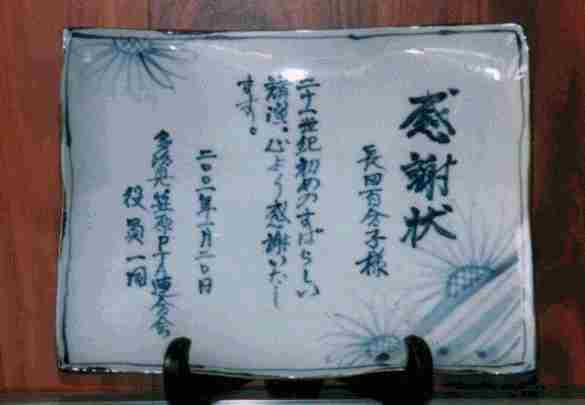 感謝状
長田百合子様
二十一世紀初めのすばらしい
講演、心より感謝いたし
ます。
二〇〇一年一月二〇日
多治見・笠原PTA連合会
役員一同